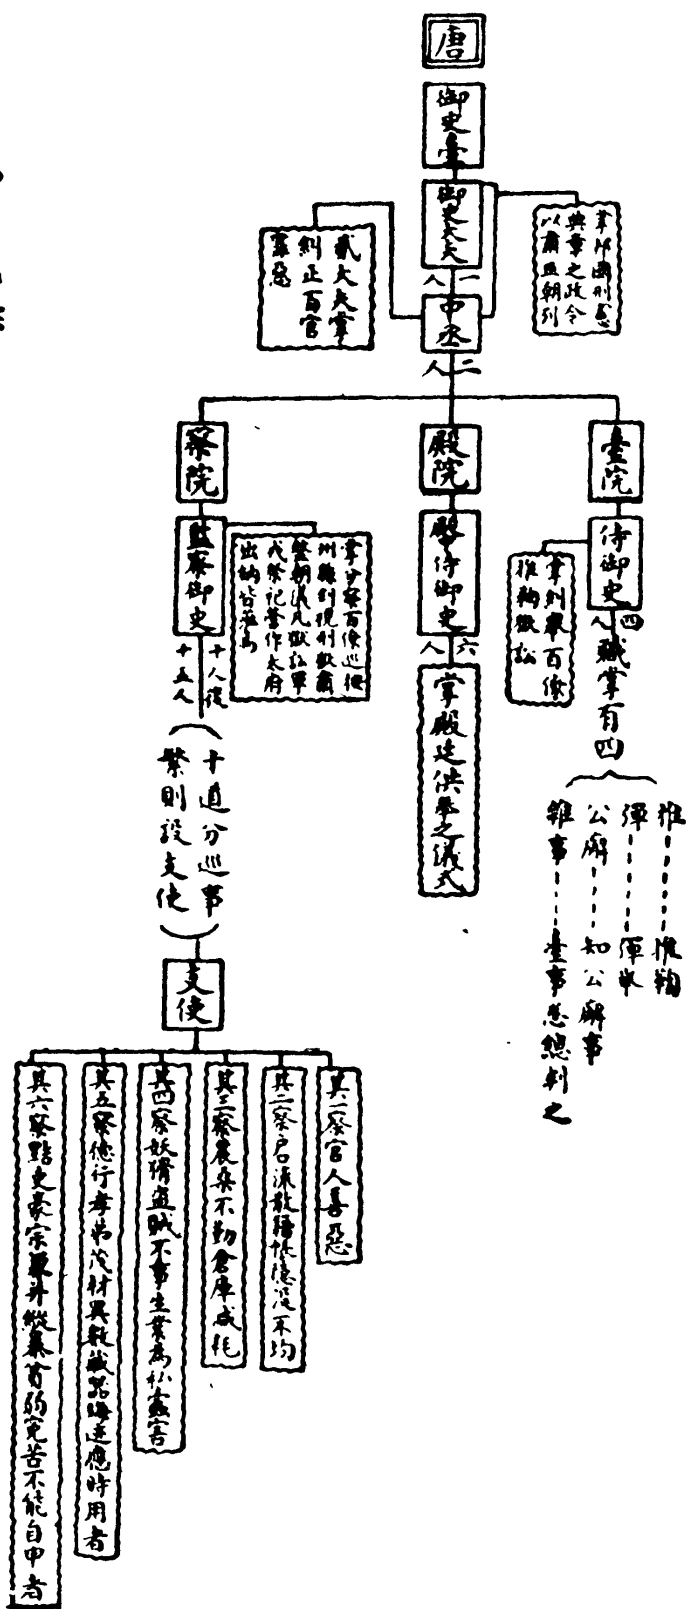 唐
御史臺
御史大夫
一人
掌邦國刑憲
典章之政令
以肅正朝列
中丞
二人
貳大夫掌
糾正百官
罪惡
臺院
侍御史
四人
掌糾舉百僚
推鞫獄訟
職掌有四
推……推鞫
彈……彈舉
公廨……知公廨事
雜事……臺事悉總判之
殿院
殿中侍御史
六人
掌殿廷供奉之儀式
察院
監察御史
十人後
十五人
掌分察百僚巡按
州縣糾視刑獄肅
整朝儀凡獄訟軍
戎祭祀營作太府
出納皆蒞焉
(十道分巡事
繁則設支使)
支使
其一察官人善惡
其二察戶口流散籍帳隱沒不均
其三察農桑不勤倉庫減耗
其四察妖猾盜賊不事生業為私蠹害
其五察德行孝弟茂材異數藏器晦迹應時用者
其六察黠吏豪宗兼并縱暴貧弱冤苦不能自申者